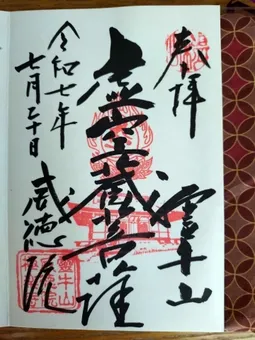 奉拝
靈牛山
虚空蔵菩薩
令和七年
七月二十日
威徳院